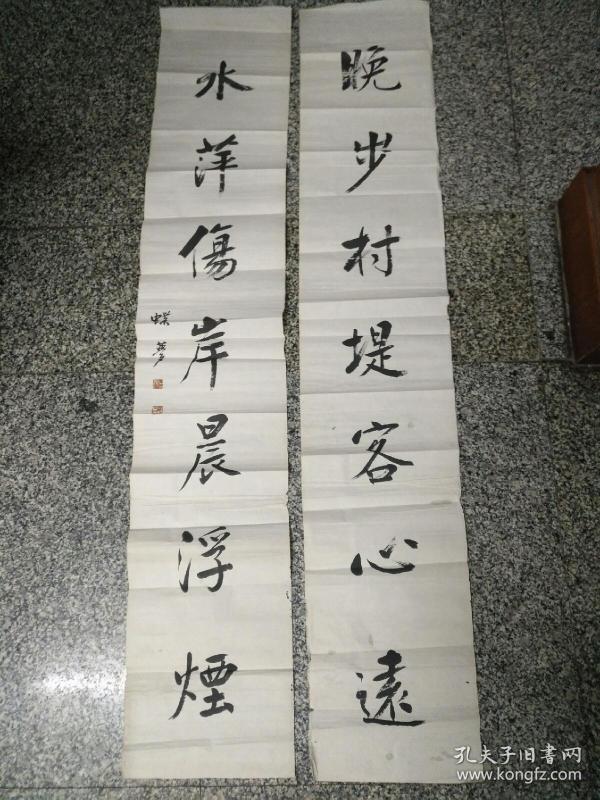 晚步村堤客心遠
水萍傷岸晨浮煙
蝶夢
孔夫子旧書网
www.kongfz.com